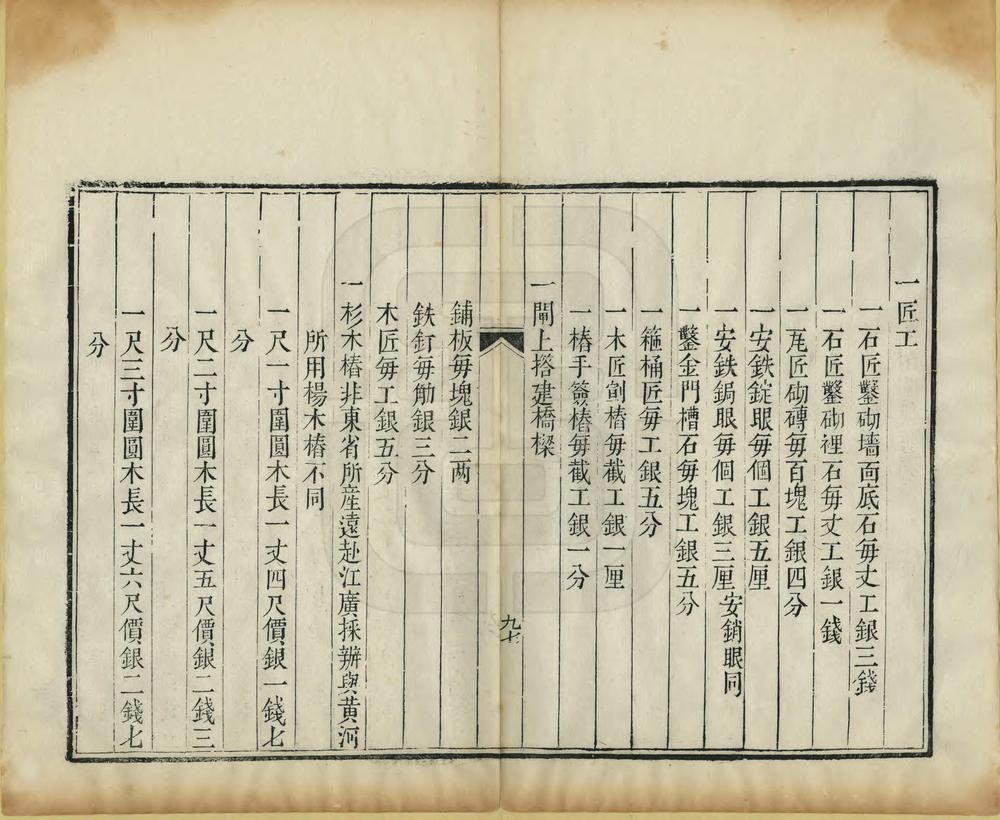 一匠工
一石匠鏨砌墻面底石每丈工銀三錢
一石匠鏨砌裡石每丈工銀一錢
一瓦匠砌磚每百塊工銀四分
一安鉄錠眼每個工銀五厘
一安鉄鋦眼每個工銀三厘安銷眼同
一鏨金門槽石每塊工銀五分
一箍桶匠每工銀五分
一木匠創樁每截工銀一厘
一樁手簽樁每截工銀一分
一閘上搭建橋樑
九七
鋪板每塊銀二两
鉄釘每觔銀三分
木匠每工銀五分
一杉木樁非東省所產遠赴江廣採辦與黄河
所用楊木樁不同
一尺一寸圍圓木長一丈四尺價銀一錢七
分
一尺二寸圍圓木長一丈五尺價銀二錢三
分
一尺三寸圍圓木長一丈六尺價銀二錢七
分